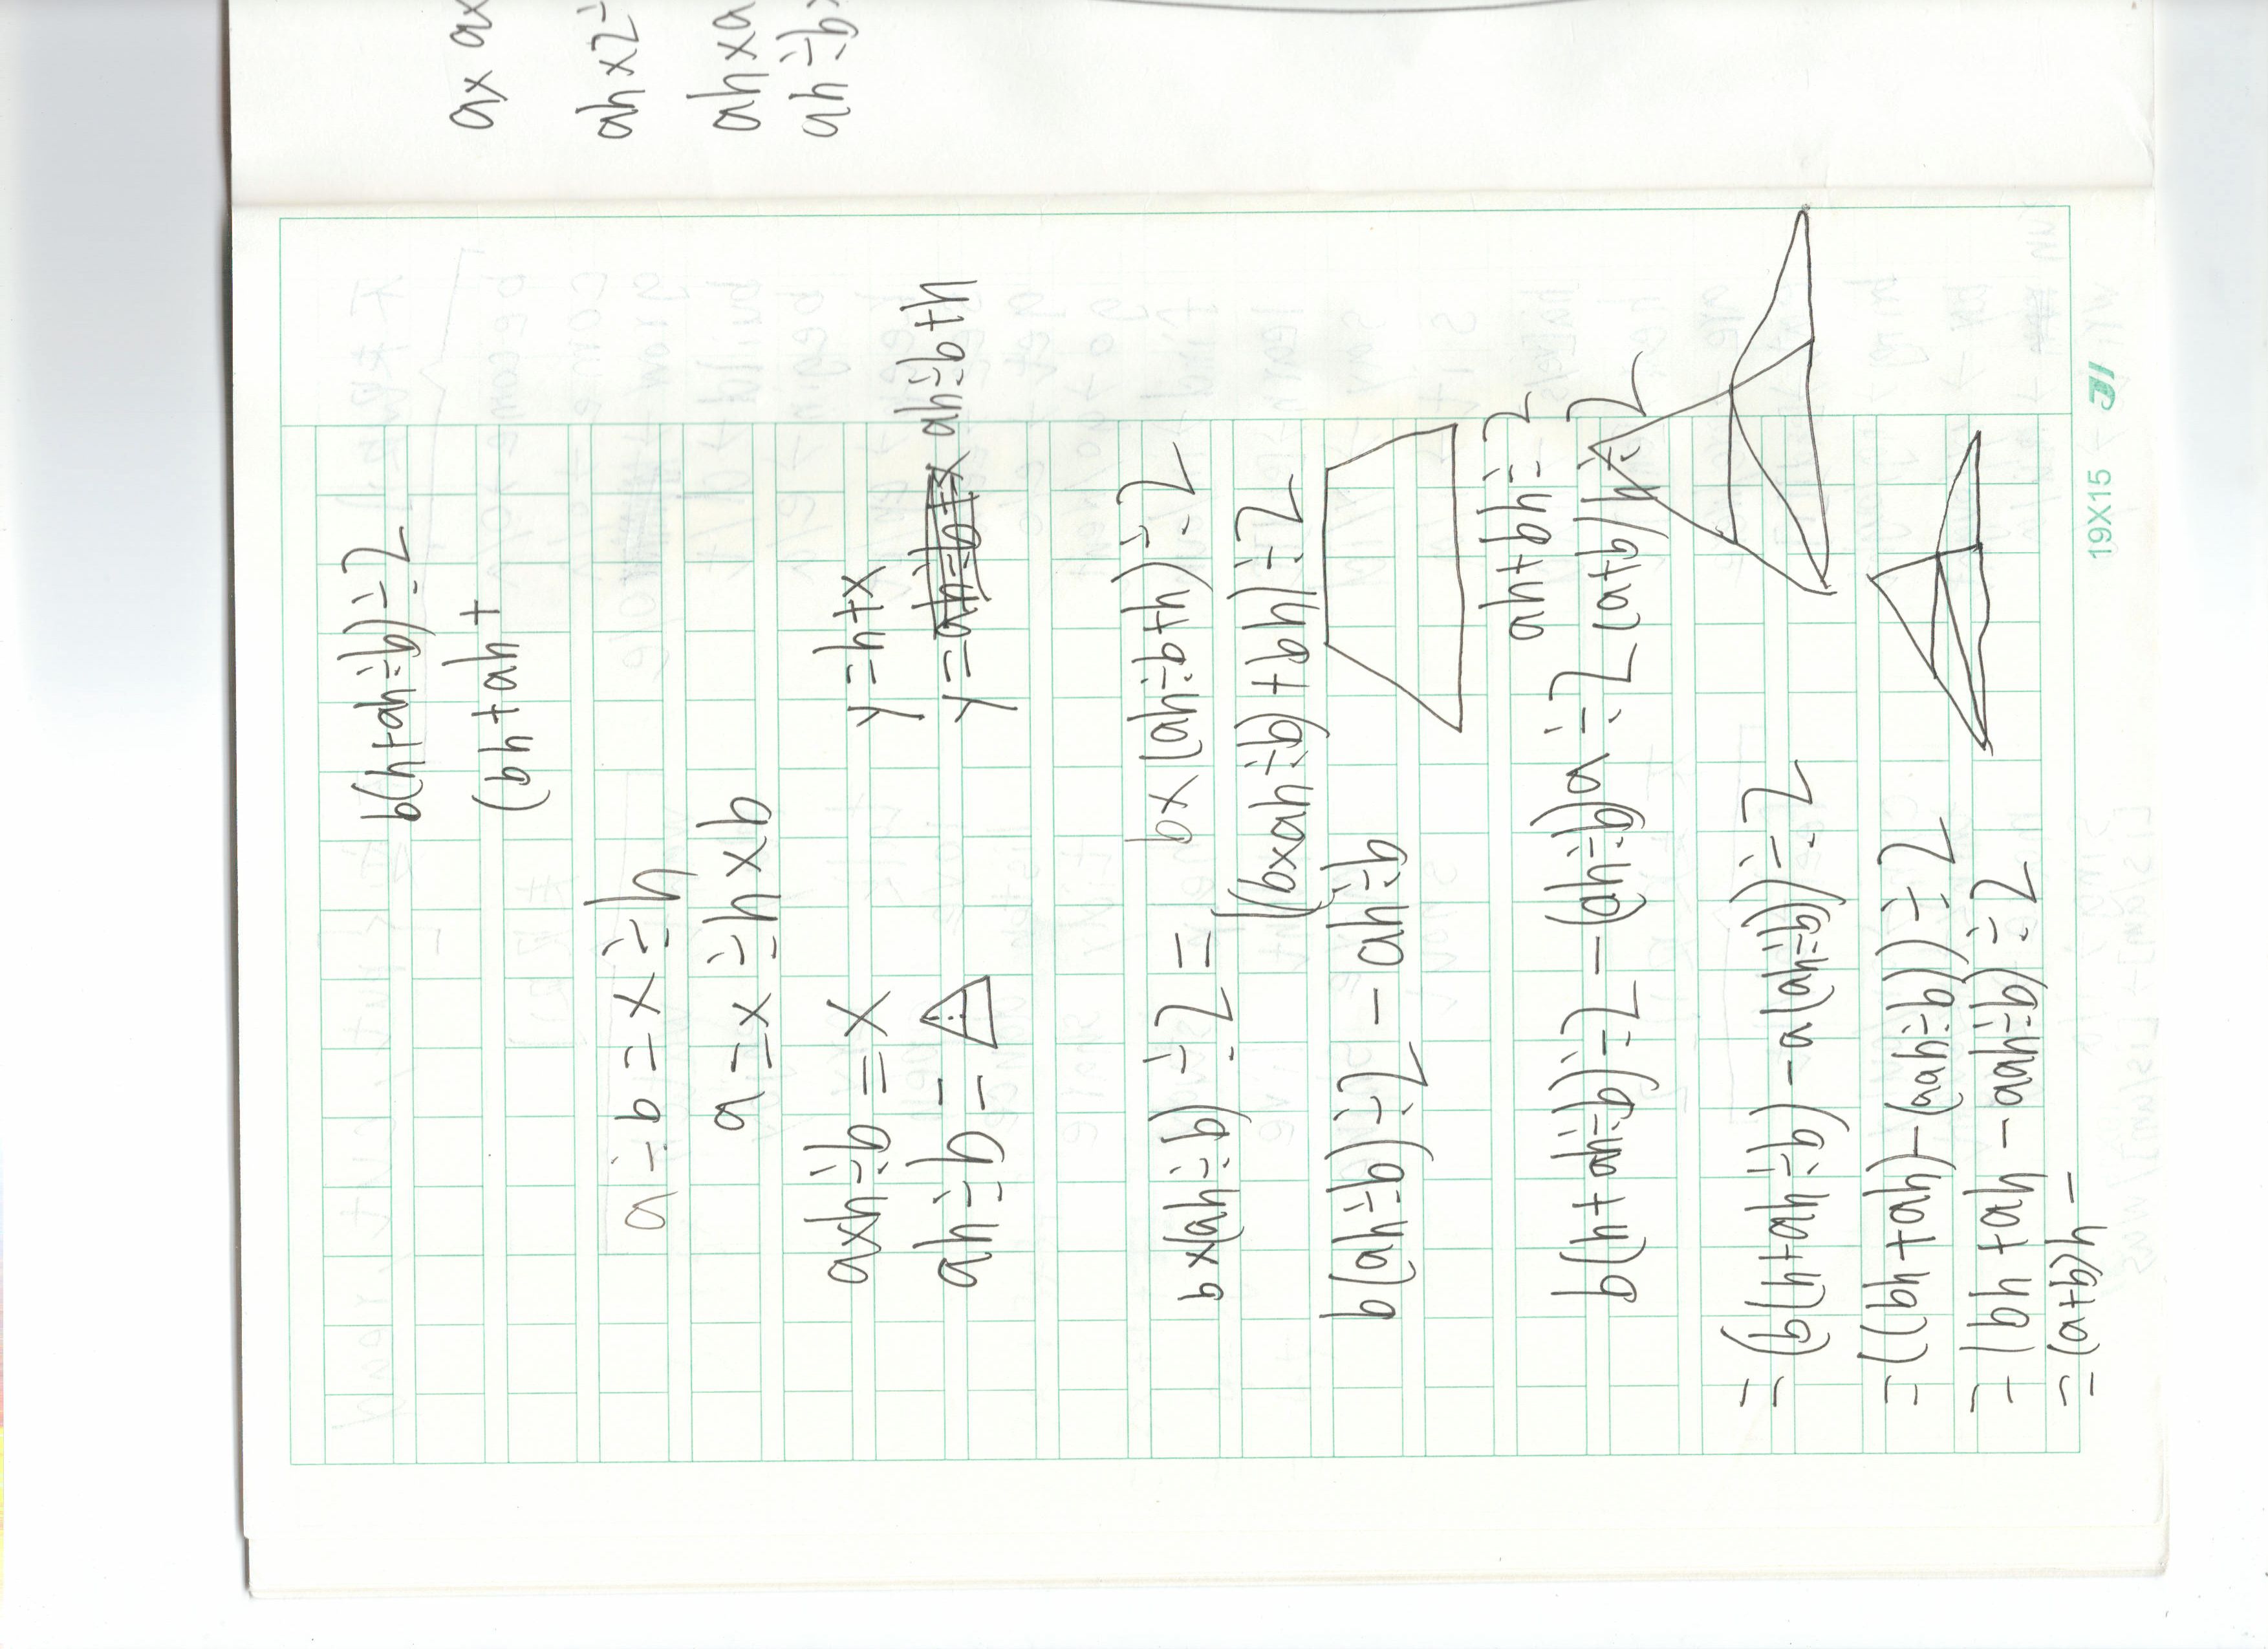 ax ax
ah x2=
ah xa
ah÷b
b(h+ah÷b)÷2
(bh+ah+
a÷b=x÷h
a=x÷h×b
axh÷b=x
y=h+x
ah÷b=
y=
ah÷b+h
b×(ah÷b)÷2=
b×(ah÷b+h)÷2
((b×ah÷b)+bh)÷2
b(ah÷b)÷2-ah÷b
ah+bh÷2
b(h+ah÷b)÷2-(ah÷b)a÷2
(a+b)h÷2
=(b(h+ah÷b)-a(ah÷b))÷2
=((bh+ah)-(aah÷b))÷2
=(bh+ah-aah÷b)÷2
=(a+b)h-
19X15